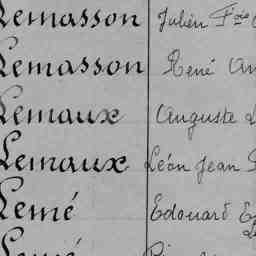 Lemasson Julien Fois
Lemasson René
Lemaux Auguste
Lemaux Léon Jean
Lemé Edouard
Lemé